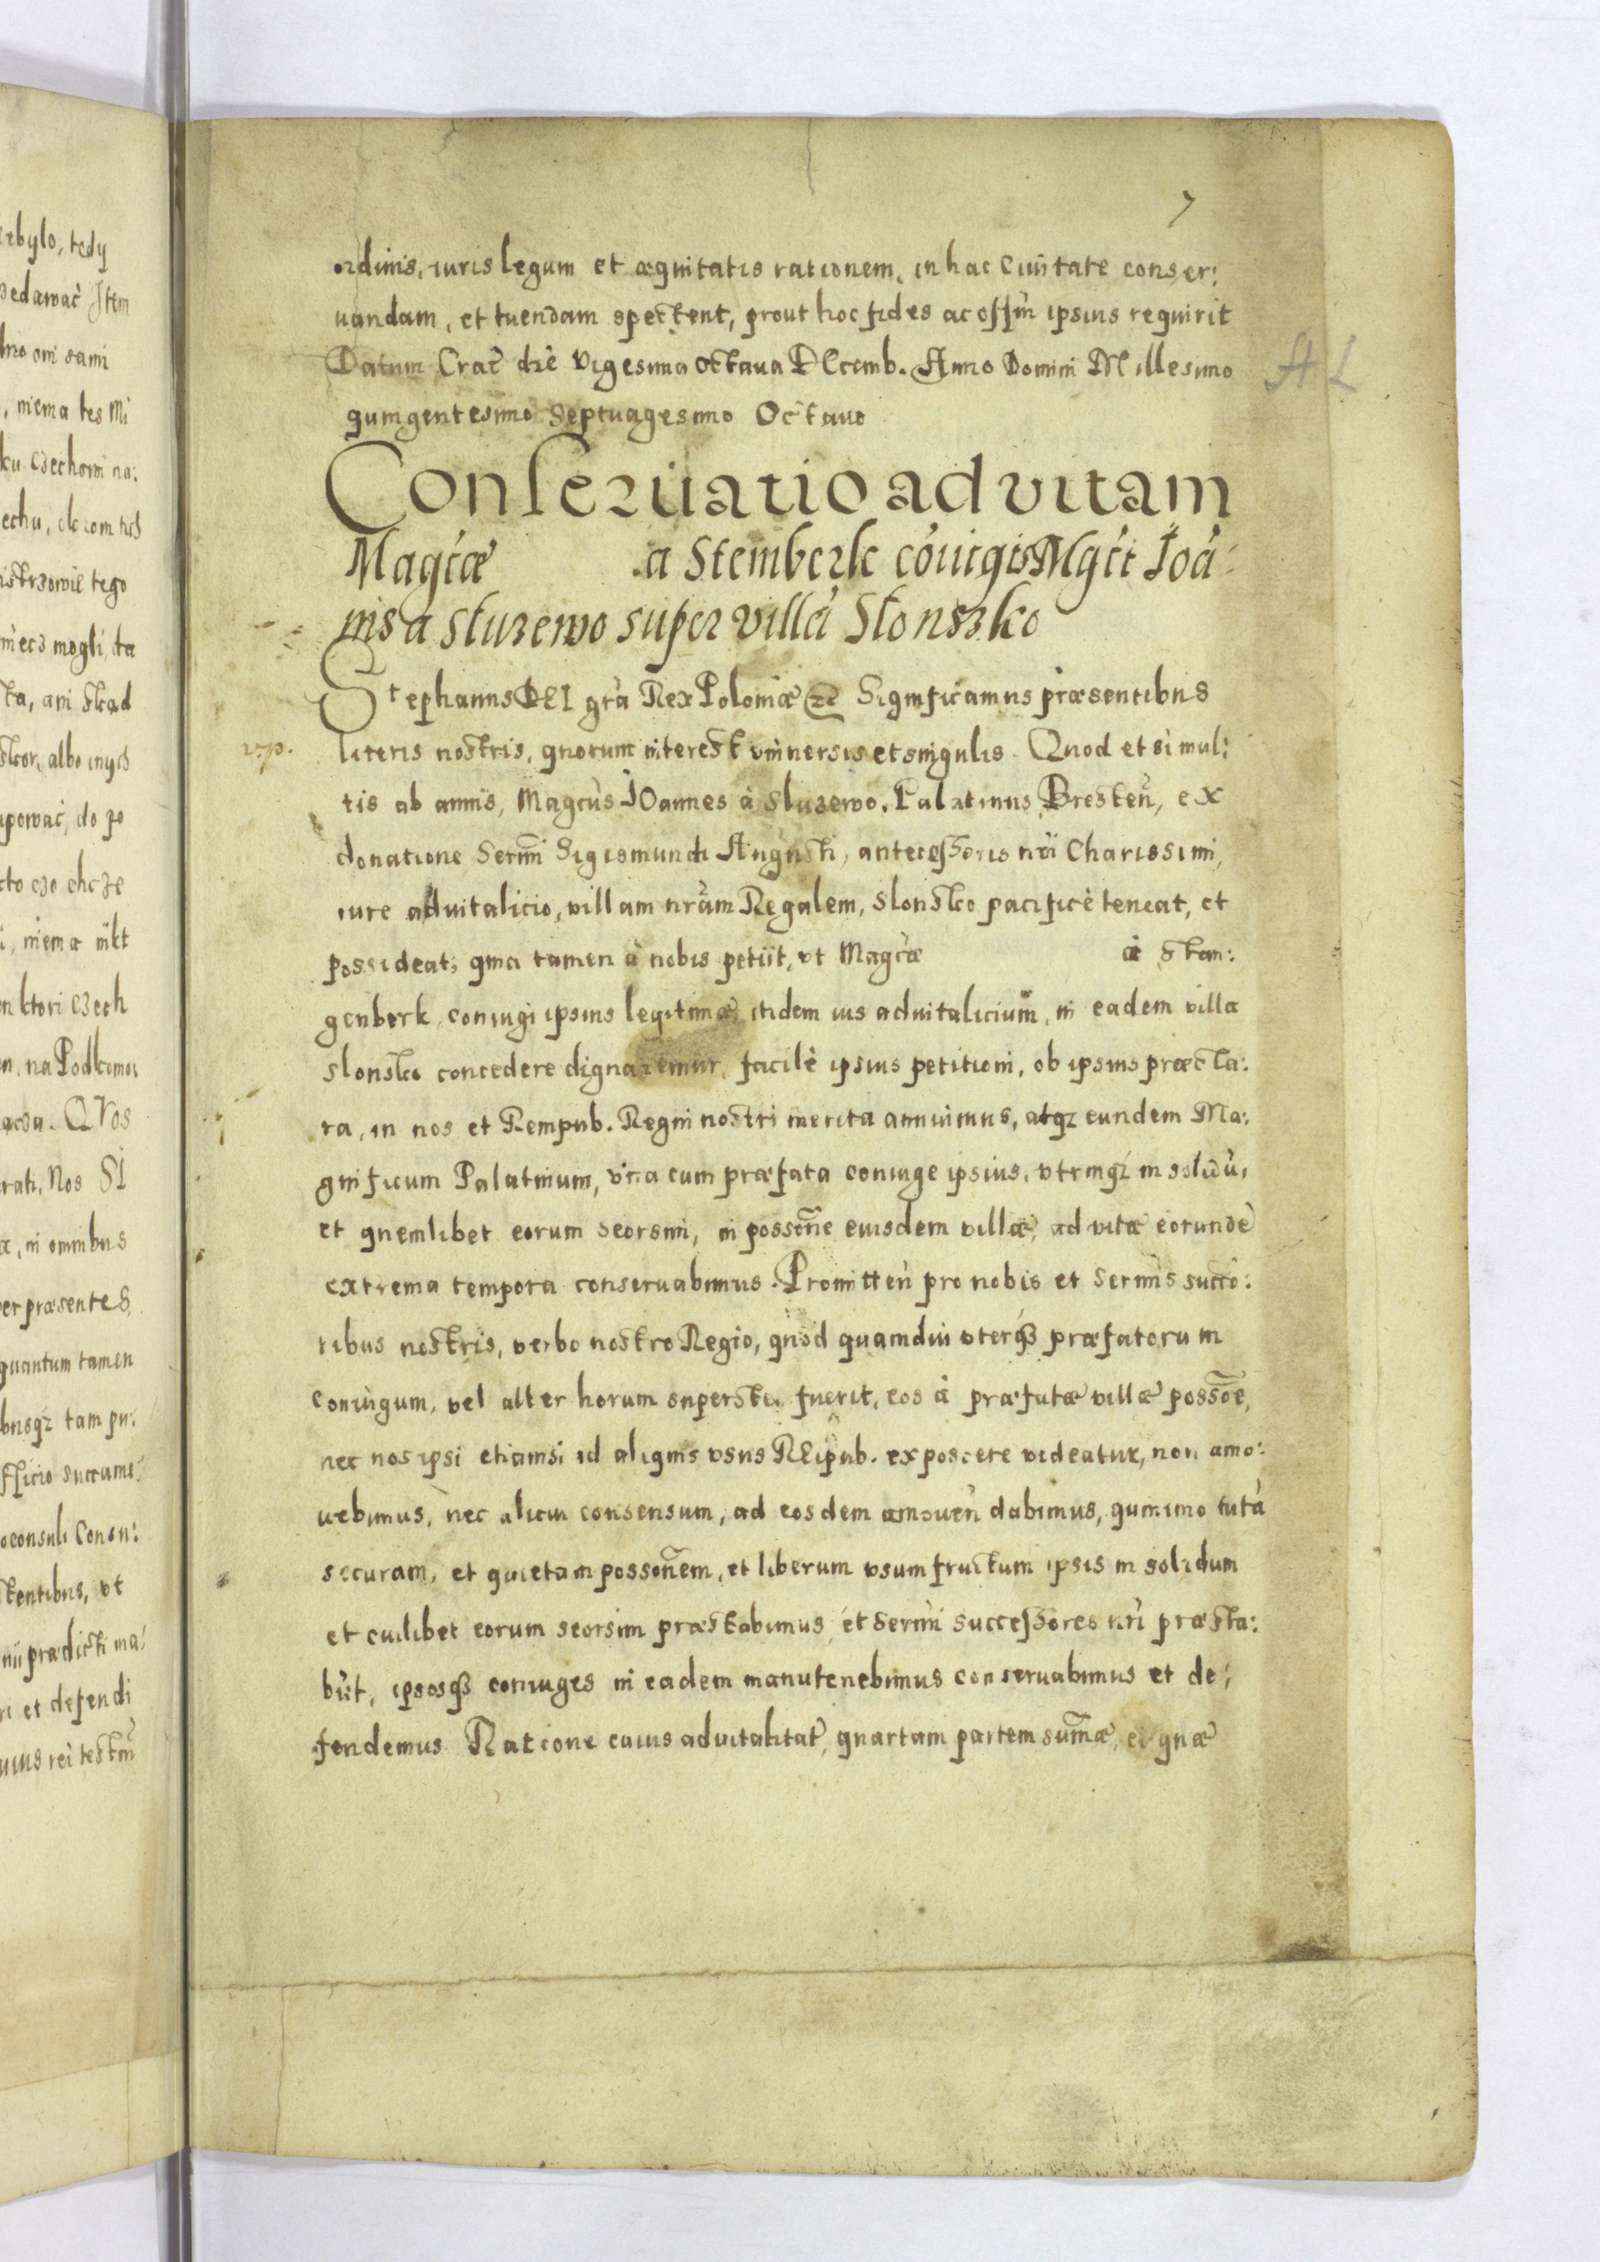 7
ordinis, iuris legum et æquitatis rationem, in hac Ciuitate conser:
uandam, et tuendam spectent, prout hoc fides ac offm̃ ipsius requirit
Datum Crac̃ die Vigesima octaua DEcemb. Anno Domini Millesimo
quingentesimo Septuagesimo Octauo
Conseruatio ad vitam
Magcæ a Stemberk cõiugis Mgci Joã:
nis a Sluzewo super villã Slonszko
Stephanus DEI grã Rex Poloniæ etc Significamus præsentibus
literis nostris, quorum interest vniuersis et singulis. Quod etsi mul:
tis ab annis, Magcus IOannes à Sluzewo, Palatinus Bresteñ, ex
donatione Sermi Sigismundi Augusti, antecessoris nri Charissimi,
iure aduitalicio, villam nrãm Regalem, Slonsko pacificè teneat, et
possideat; quia tamen à nobis petiit, vt Magcæ à Stan:
genberk, coniugi ipsius legitimæ, itidem ius aduitalicium, in eadem villa
Slonsko concedere dignaremur, facilè ipsius petitioni, ob ipsius præcla:
ra, in nos et Rempub. Regni nostri merita annuimus, atqz eundem Ma:
gnificum Palatinum, vna cum præfata coniuge ipsius, vtrunqz in solidũ,
et quemlibet eorum seorsim, in possoñe eiusdem villæ, ad vitæ eorundẽ
extrema tempora conseruabimus. Promitteñ pro nobis et Sermis succo:
ribus nostris, verbo nostro Regio, quòd quamdiu vterqз præfatorum
coniugum, vel alter horum superstes fuerit, eos à præfatæ villæ possõe,
nec nos ipsi etiamsi id aliquis vsus REipub. exposcere videatur, non amo:
uebimus, nec alicui consensum, ad eosdem amoueñ dabimus, quinimo tutã
securam, et quietam possonẽm, et liberum vsumfructum ipsis in solidum
et cuilibet eorum seorsim præstabimus, et Sermi Successores nri præsta:
bũt, ipsosqз coniuges in eadem manutenebimus conseruabimus et de:
fendemus Ratione cuius aduitalitat̃, quartam partem summæ, ei quæ